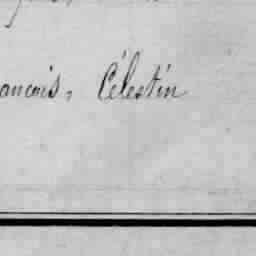 ancois, Célestin